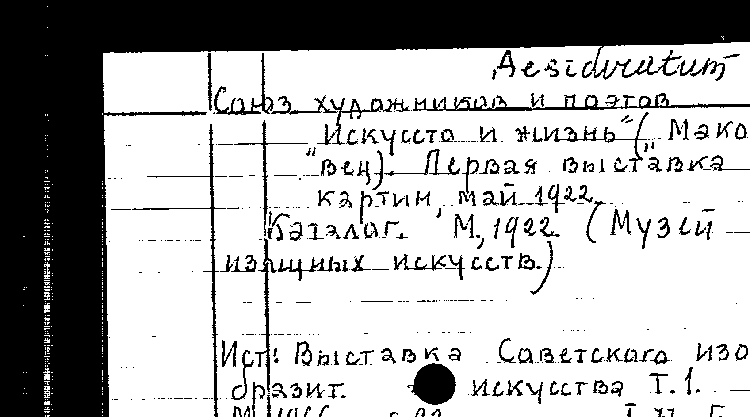 Desideratum
Союз художников и поэтов
„Искусство и жизнь" („Мако
вец). Первая выставка
картин, май 1922.
Каталог. М., 1922. (Музей
изящных искусств.)
Ист: Выставка Советского изо
бразит. искусства Т.1.